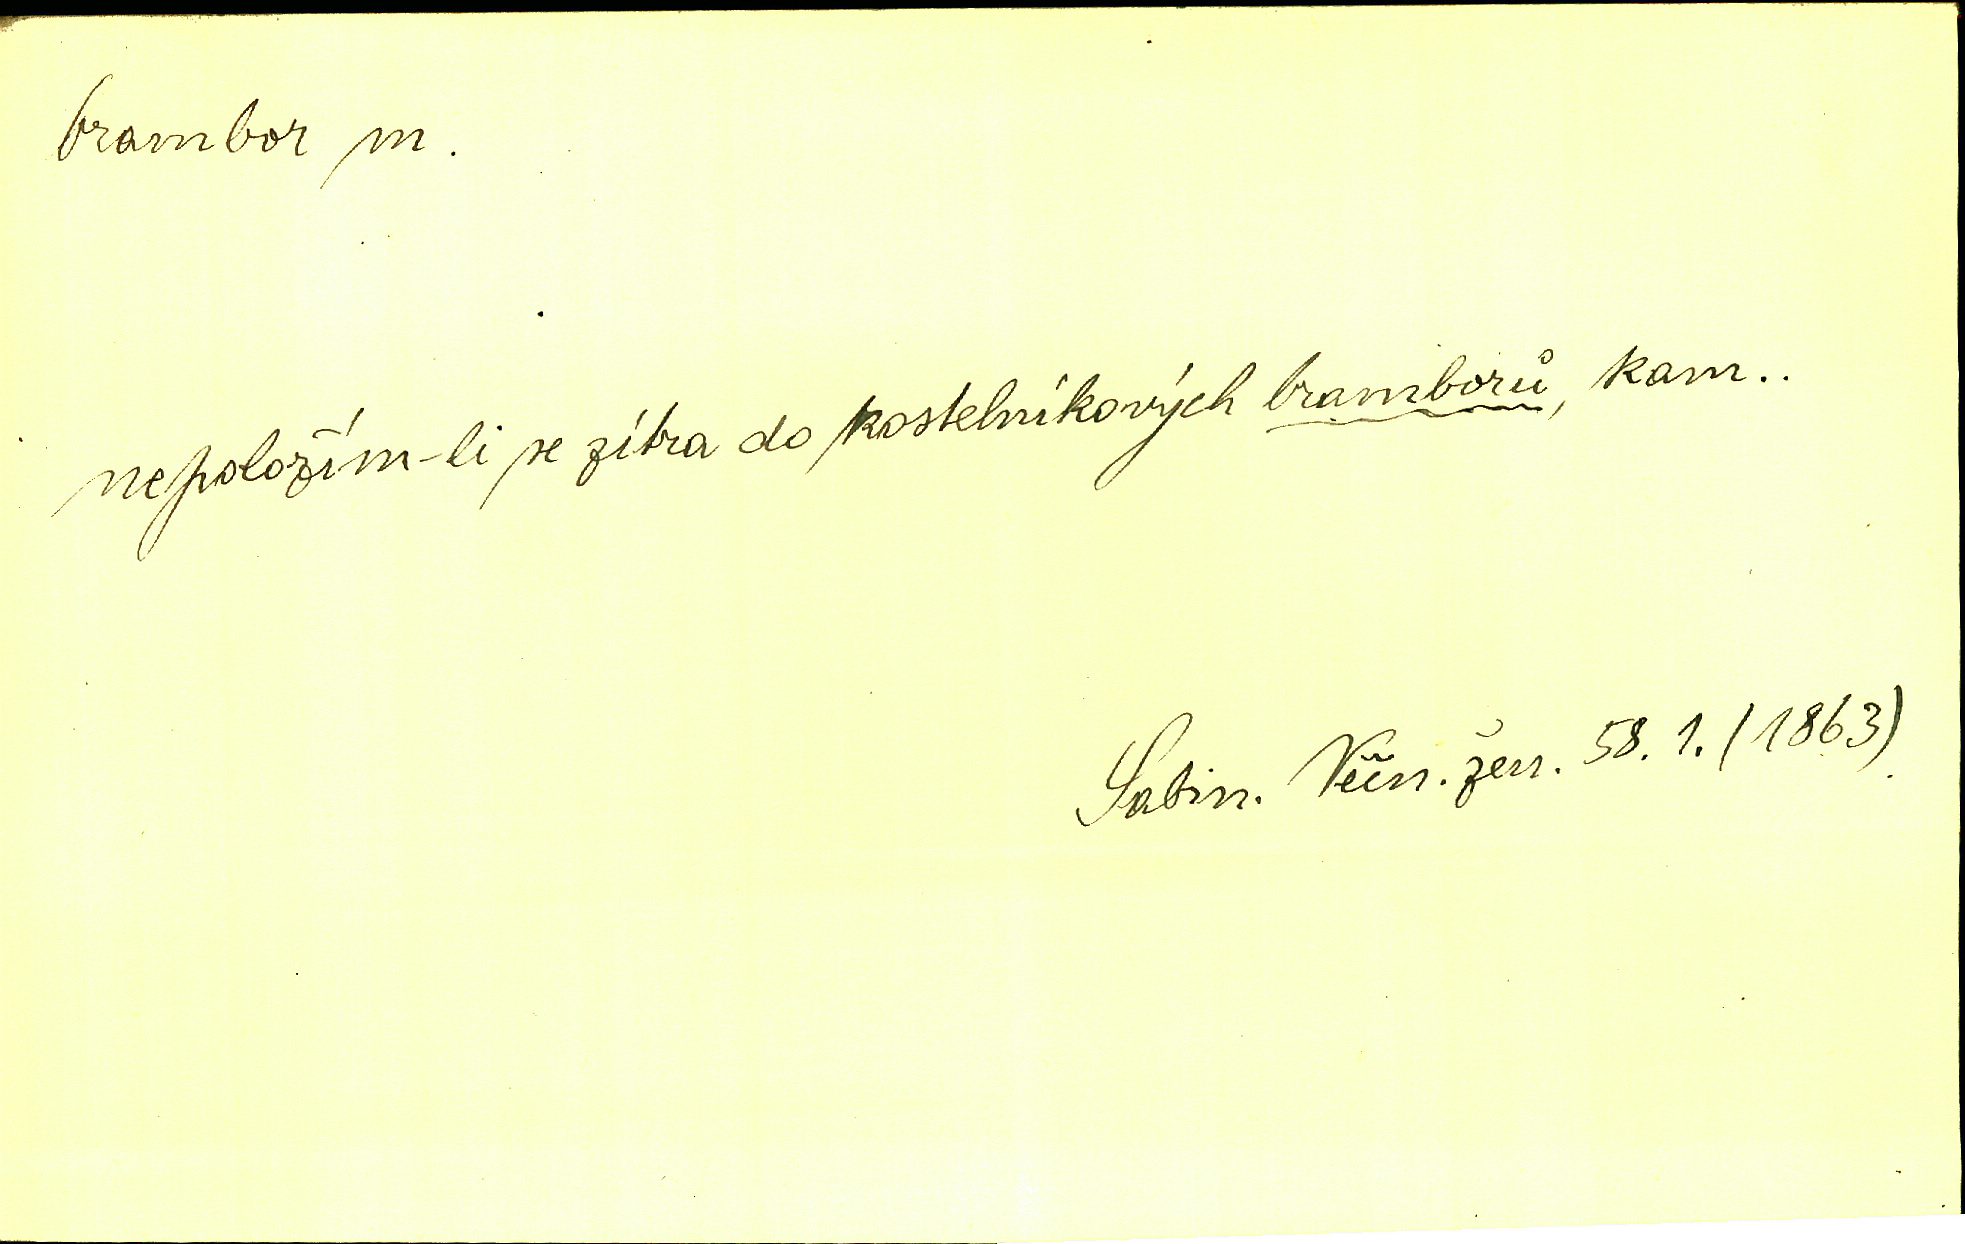 brambor m.
nepoložím-li se zítra do kostelníkových bramborů, kam..
Sabin. Věčn. žen. 58. 1. (1863)